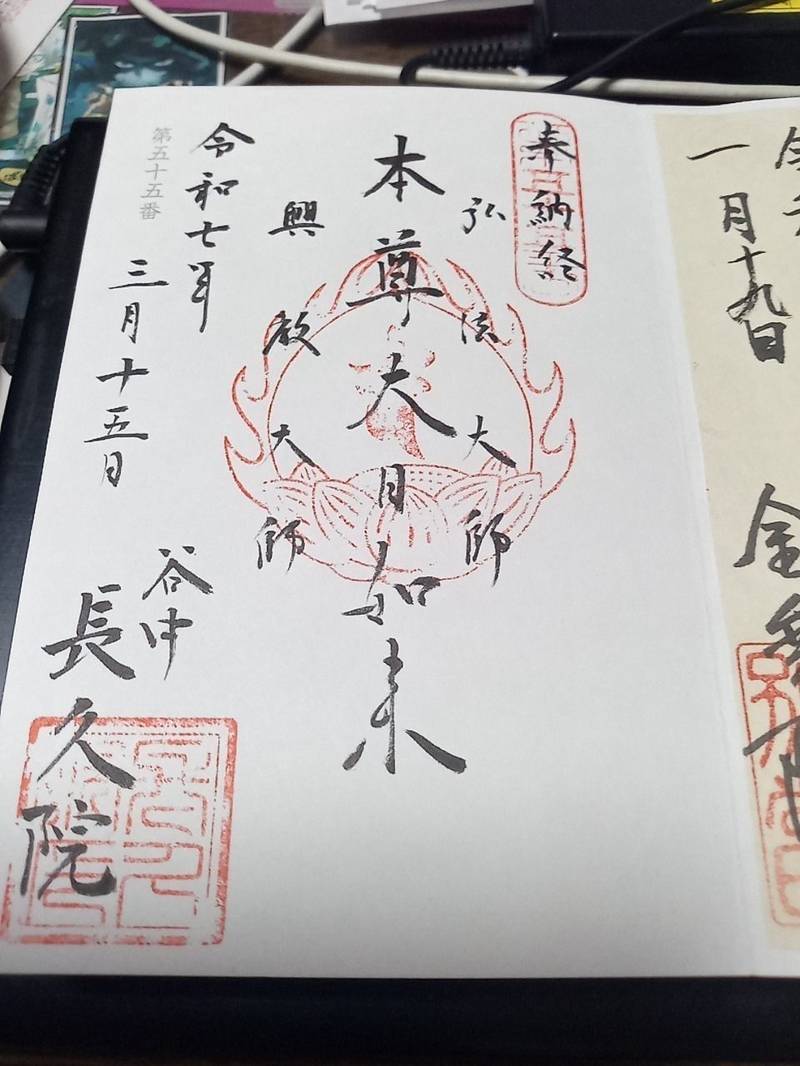 一月十九日
奉納経
弘法大師
本尊大日如来
興教大師
令和七年
三月十五日
谷中
長久院
第五十五番